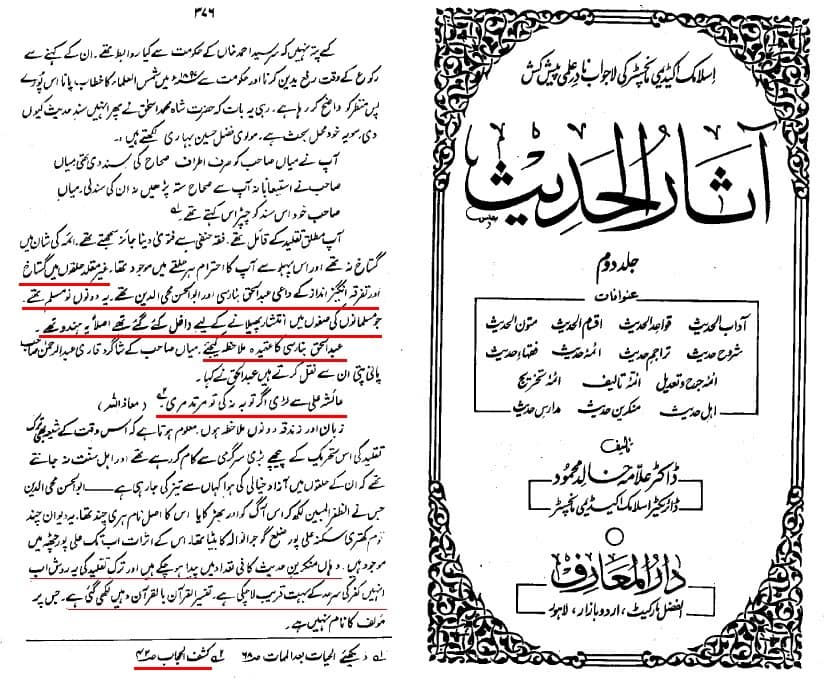 ۳۷۶
کسے پتہ نہیں کہ سرسید احمد خاں کے حکومت سے کیا روابط تھے۔ ان کے کہنے سے
رکوع کے وقت رفع یدین کرنا اور حکومت سے ۱۸۹۷ء میں شمس العلماء کا خطاب پانا اس پورے
پس منظر کو واضح کر رہا ہے۔ رہی یہ بات کہ حضرت شاہ محمد اسحٰق نے پھر انہیں سند حدیث کیوں
دی، سو یہ خود محل بحث ہے۔ مولوی فضل حسین بہاری لکھتے ہیں :۔
آپ نے میاں صاحب کو صرف اطراف صحاح کی سند دی تھی، میاں
صاحب نے استیعاباً نہ آپ سے صحاح ستہ پڑھیں نہ ان کی سند لی۔ میاں
صاحب خود اس سند کو چپڑاس کہتے تھے لہ
آپ مطلق تقلید کے قائل تھے۔ فقہ حنفی سے فتویٰ دینا جائز سمجھتے تھے۔ ائمہ کی شان میں
گستاخ نہ تھے اور اس پہلو سے آپ کا احترام ہر حلقے میں موجود تھا۔ غیر مقلد حلقوں میں گستاخ
اور تفرقہ انگیز انداز کے داعی عبدالحق بنارسی اور ابوالحسن محی الدین تھے۔ یہ دونوں نو مسلم تھے
جو مسلمانوں کی صفوں میں انتشار پھیلانے کے لیے داخل کئے گئے تھے اصلاً یہ ہندو تھے۔
عبدالحق بنارسی کا عقیدہ ملاحظہ کیجئے۔ میاں صاحب کے شاگرد قاری عبدالرحمٰن صاحب
پانی پتی ان سے نقل کرتے ہیں عبدالحق نے کہا۔
عائشہ علی سے لڑی اگر توبہ نہ کی تو مرتد مری ۲ (معاذ اللہ)
زبان اور زندقہ دونوں ملاحظہ ہوں۔ معلوم ہوتا ہے کہ اس وقت کے شیعہ ترک
تقلید کی اس تحریک کے پیچھے بڑی سرگرمی سے کام کر رہے تھے اور اہل سنت نہ جانتے
تھے کہ ان کے حلقوں میں آزاد خیالی کی ہوا کہاں سے تیز کی جا رہی ہے ــــ ابوالحسن محی الدین
جس نے الظفر المبین لکھ کر اس آگ کو اور بھڑکایا اس کا اصل نام ہری چند تھا۔ یہ دیوان چند
قوم کھتری سکنہ علی پور ضلع گوجرانوالہ کا بیٹا تھا۔ اس کے اثرات اب تک علی پور چٹھہ میں
موجود ہیں۔ وہاں منکرین حدیث کافی تعداد میں پیدا ہو چکے ہیں اور ترک تقلید کی یہ روش اب
انہیں کفر کی سرحد کے بہت قریب لا چکی ہے۔ تفسیر القرآن بالقرآن وہیں لکھی گئی ہے۔ جس پر
مؤلف کا نام نہیں ہے۔
لہ دیکھئے الحیات بعد الممات ص۶۸ ۲ کشف الحجاب ص۴۲
اسلامک اکیڈیمی مانچسٹر کی لاجواب نادر علمی پیش کش
آثار الحدیث
جلد دوم
عنوانات
آداب الحدیث قواعد الحدیث اقسام الحدیث متون الحدیث
شروح حدیث تراجم حدیث ائمہ حدیث فقہاء حدیث
ائمہ جرح و تعدیل ائمہ تالیف ائمہ تخریج
اہل حدیث منکرین حدیث مدارس حدیث
تالیف
ڈاکٹر علامہ خالد محمود
ڈائریکٹر اسلامک اکیڈیمی مانچسٹر
دار المعارف
الفضل مارکیٹ، اردو بازار، لاہور